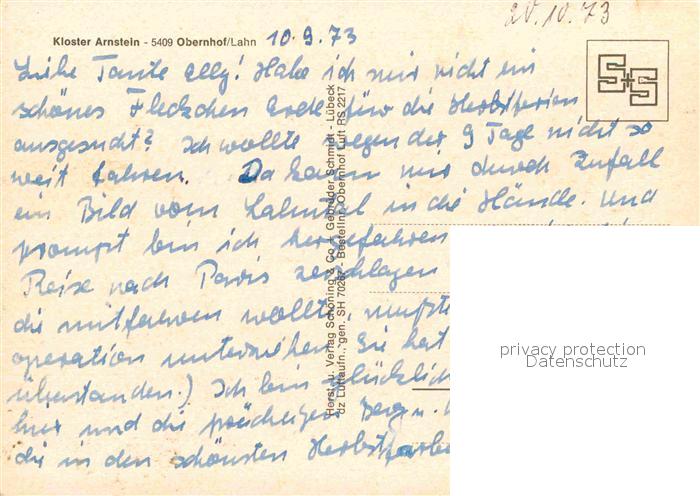 20.10.73
Kloster Arnstein - 5409 Obernhof/Lahn 10.9.73
S+S
Liebe Tante Elly! Habe ich mir nicht ein
schönes Fleckchen Erde für die Herbstferien
ausgesucht? Ich wollte wegen der 9 Tage nicht so
weit fahren. Da kam mir durch Zufall
ein Bild vom Lahntal in die Hände. Und
prompt bin ich hergefahren
Reise nach Paris zerschlagen
die mitfahren wollte, mußte
operation unterziehen. Sie hat
überstanden.) Ich bin glücklich
hier und die prächtigen Berg u.
die in den schönsten Herbstfarben
Herst. u. Verlag Schöning & Co + Gebrüder Schmidt - Lübeck
dz Luftaufn., gen. SH 70262 - Bestellnr. Obernhof Luft RS 2217
privacy protection
Datenschutz